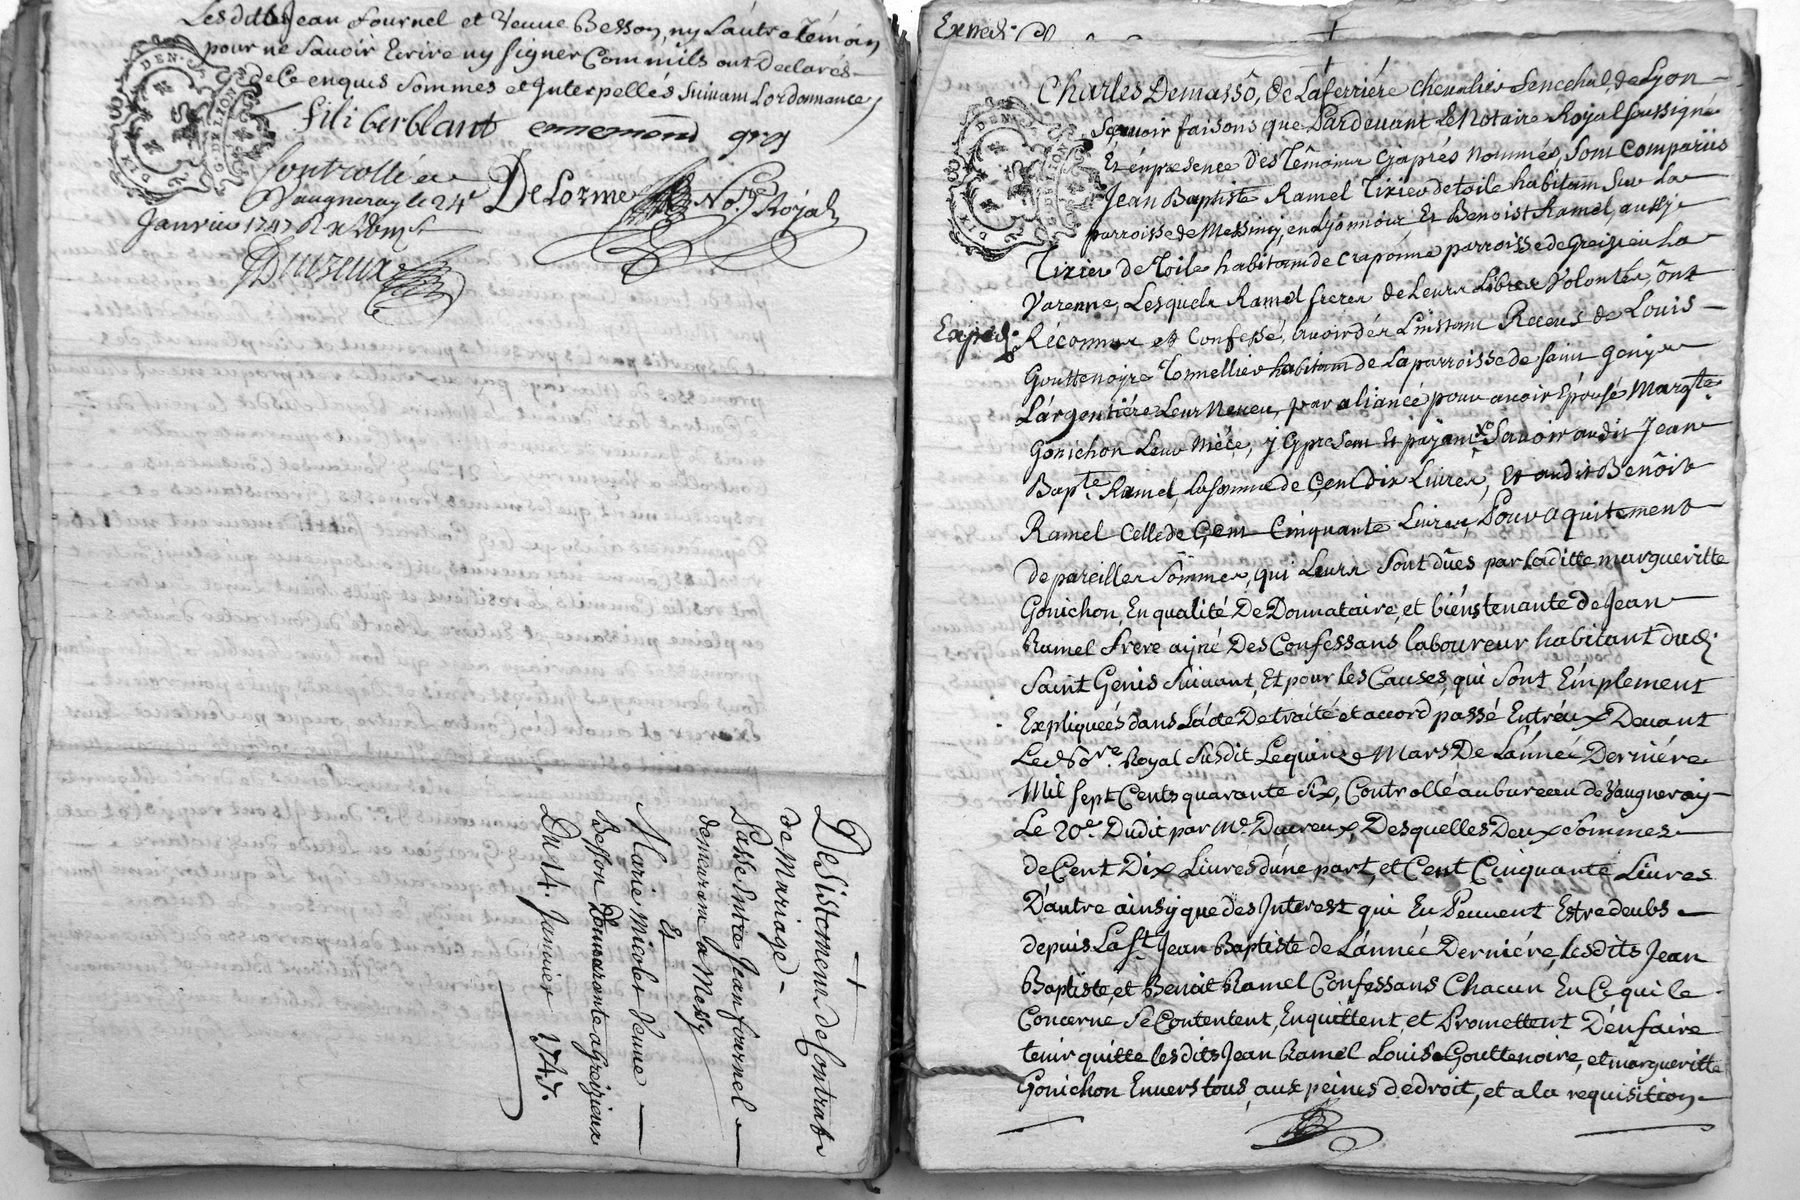 Lesdits Jean fournel et Veuve Besson, ny Lautre Témoin
pour ne Savoir Ecrire ny signer Comm'ils ont Declarés
de Ce enquis Sommes et Interpellés Suivant Lordonnance
filiberblant ennemond gros
Controllé a
Vaugneray le 24e
Janvier 1747 R x
DeLorme No.re Royal
Ducreux
GEN. DE LION
DIX DEN.
Desistement de Contrat
de Mariage
Passé Entre Jean fournel
demeurant a Messy
Et
Marie micolet Veuve
Besson Demeurante a Greizieux
Du 14. Janvier 1747.
Exped.
Charles Demassô, de Laferriére Chevalier Senechal, de Lyon
Sçavoir faisons que Pardevant Le Notaire Royal soussigné
Et en presence des Têmoins Cyaprés Nommés, Sont Comparûs
Jean Baptiste Ramel Tixier de toile habitant Sur La
parroisse de Messimy, en Lyonnois Et Benoist Ramel, aussy
Tixier de Toile habitant de Craponne parroisse de Greizieu La
Varenne, Lesquels Ramel freres de Leurs Libres Volontés, ônt
Exped.
Réconnus et Confessé, avoir dés Linstant Receus de Louis
Gouttenoire Tonnellier habitant de La parroisse de saint Genis
L'argentiére Leur Neveu, par aliancé pour avoir Epousé Marg.te
Gonichon Leur Niéce, y Cypresent Et payant Savoir audit Jean
Bap.te Ramel, La somme de Cent Dix Livres, Et audit Benôist
Ramel Celle de Cent Cinquante Livres, Pour aquitement
de pareilles Sômmes, qui Leurs Sont dûes par Laditte margueritte
Gonichon, En qualité De Donnataire, et biénstenante de Jean
Ramel Frere ayné Des Confessans laboureur habitant dud.
Saint Genis Suivant, Et pour les Causes, qui Sont Emplement
Expliqueés dans L'acte De traité et accord passé Entréux Devant
Le No.re Royal Susdit Le quinze Mars De L'année Derniére
Mil sept Cents quarante Six, Controllé au bureau de Vaugneray
Le 20e. Dudit par Me. Ducreux, Desquelles Deux Sommes
de Cent Dix Livres dune part, et Cent Cinquante Livres
D'autre ainsy que des Interest qui En Peuvent Estre deubs
depuis La s.t Jean Baptiste de L'année Derniére, lesdits Jean
Baptiste, et Benoit Ramel Confessans Chacun En Ce qui le
Concerne Se Contentent, En quittent, et Promettent D'en faire
tenir quitte lesdits Jean Ramel Louis Gouttenoire, et margueritte
Gonichon Envers tous, aux peines de droit, et a la requisition